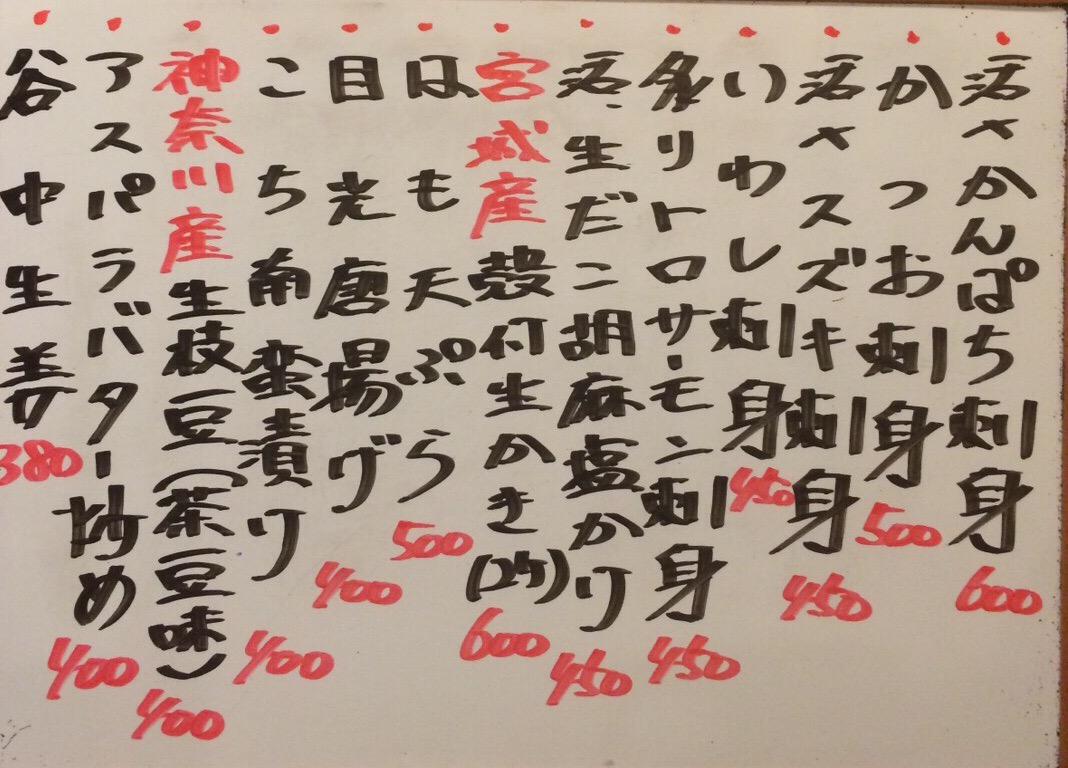 活〆かんぱち刺身 600
かつお刺身 500
活〆スズキ刺身 450
いわし刺身 450
炙りトロサーモン刺身 450
活、生だこ胡麻塩かり 450
宮城産殻付生かき(2ケ) 600
はも天ぷら 500
目光唐揚げ 400
こち南蛮漬り 400
神奈川産生枝豆(茶豆味) 400
アスパラバター炒め 400
谷中生姜 380